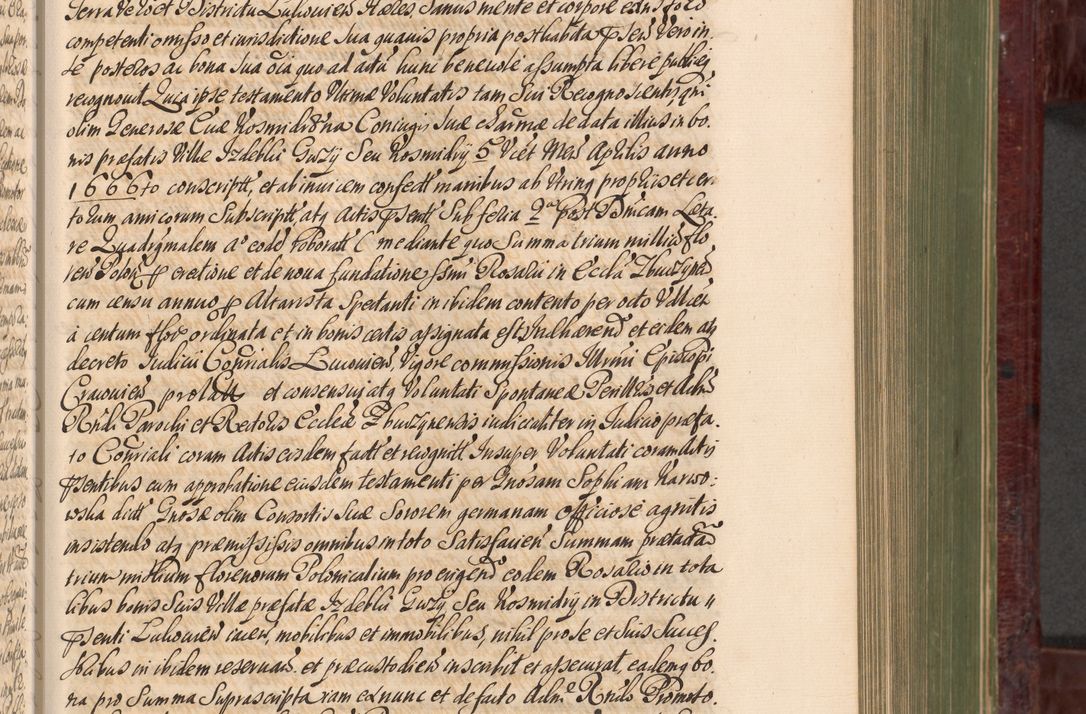 Terra Veloet Districtu Lukouien Hæres, Sanus mente et corpore
competenti omisso et iurisdictione Sua quavis propria posthabita
se posteros ac bona Sua oia quo ad actu hunc benevole assumpta libere publiceq
recognovit Quia ipse testamento Ultimæ Voluntatis tam Sui Recognoscentis
olim Generosæ Evæ Kosmidrona Coniugis Suæ charissimæ de data illius in bo
nis præfatis Villæ Izdebki Guzy Seu Kosmidry 5 Vict Mens Aprilis anno
1666to conscriptt, et ab invicem confectt manibus ab Utrinq propriis et cer
torum amicorum Subscriptt atq Actis pnsentt Sub feria 2da post Dnicam Læta
re Quadrgmalem Ao eode roboratt (mediante quo Summa trium milliu flo
ren Polon p eretione et de nova fundatione Ssmi Rosarii in Eccla Zbuczynen
cum censu annuo p Altarista Spectanti in ibidem contento per octo
a centum flor ordinata et in bonis certis assignata est Inhærend et eidem atq
decreto Iudicii Consrialis Lucovien, Vigore commissionis Illrmi Episcopi
Cracovien prolatt et consensui atq Voluntati Spontaneæ Perilltis et Adm
Rndi Parochi et Rectoris Eccleæ Zbuczynensis iudicialiter in Iudicio præfa
to Consriali coram Actis eisdem factt et recognitt Insuper Voluntati coram Actis
pnsentibus cum approbatione eiusdem testamenti per Gnosam Sophiam Karwo:
wska dictt Gnosæ olim Consortis Suæ Sororem germanam officiose agnitis
insistendo atq præmissis omnibus in toto Satisfacien Summam prætactam
trium millium florenorum Polonicalium pro erigend eodem Rosario in tota
libus bonis Suis Villæ præfatæ Izdebki Guzy Seu Kosmidry in Districtu
pnsenti Lukouien iacen, mobilibus et immobilibus, nihil pro se et Suis Succes
soribus in ibidem reservans, et præcustodiens inscribit et assecurat, eademq bo
na pro Summa Suprascripta iam ex nunc et de facto Adm Rndo Promoto